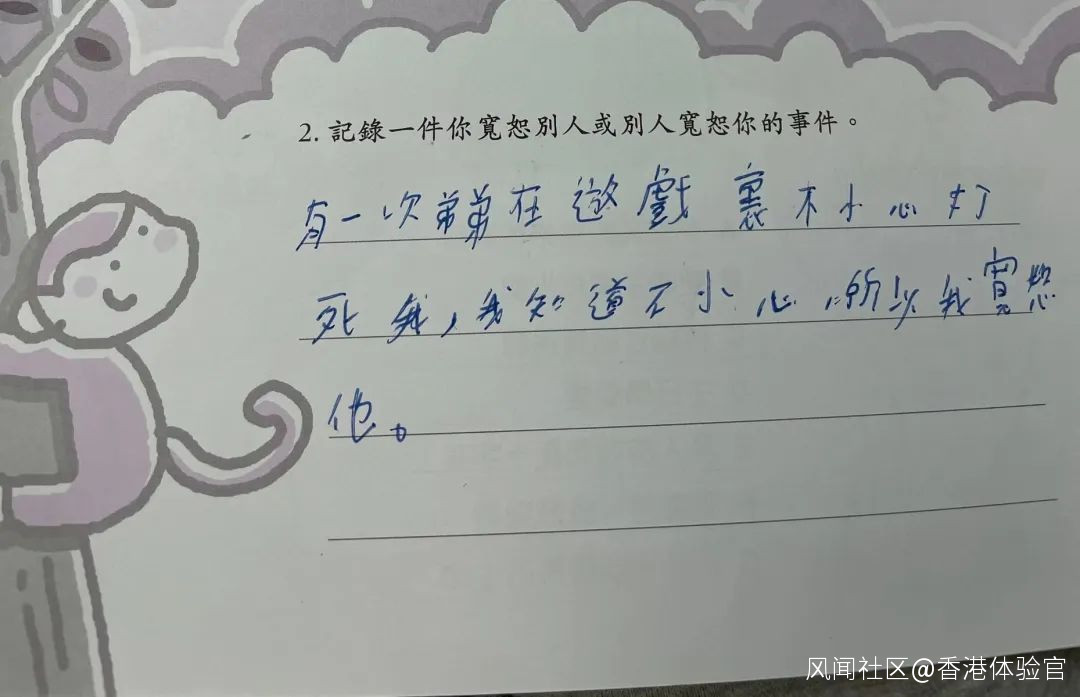 2. 記錄一件你寬恕別人或別人寬恕你的事件。
有一次弟弟在遊戲裏不小心打
死我，我知道不小心，所以我寬恕
他。
风闻社区@香港体验官